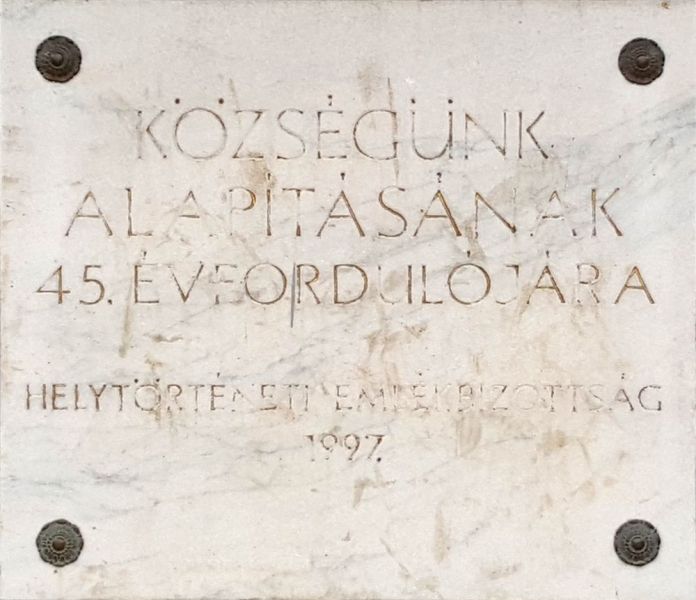 KÖZSÉGÜNK
ALAPÍTÁSÁNAK
45. ÉVFORDULÓJÁRA
HELYTÖRTÉNETI EMLÉKBIZOTTSÁG
1997.